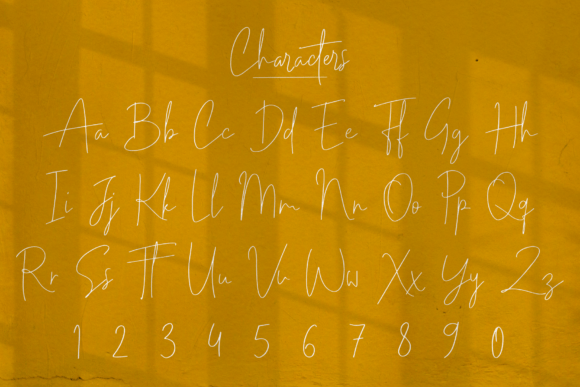 Characters
Aa Bb Cc Dd Ee Ff Gg Hh
Ii Jj Kk Ll Mm Nn Oo Pp Qq
Rr Ss Tt Uu Vv Ww Xx Yy Zz
1 2 3 4 5 6 7 8 9 0